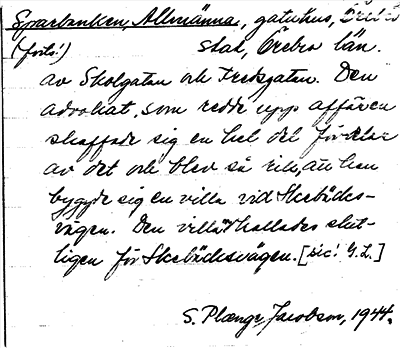 Sparbanken, Allmänna, gatuhus, Örebro
(forts.) stad, Örebro län.
av Skolgatan och Fredsgatan. Den
advokat, som redde upp affären
skaffade sig en hel del fördelar
av det och blev så rik, att han
byggde sig en villa vid Skebäcks-
vägen. Den villa kallades slut-
ligen för Skebäcksvägen. [sic! G.L.]
S. Plænge Jacobson, 1944.